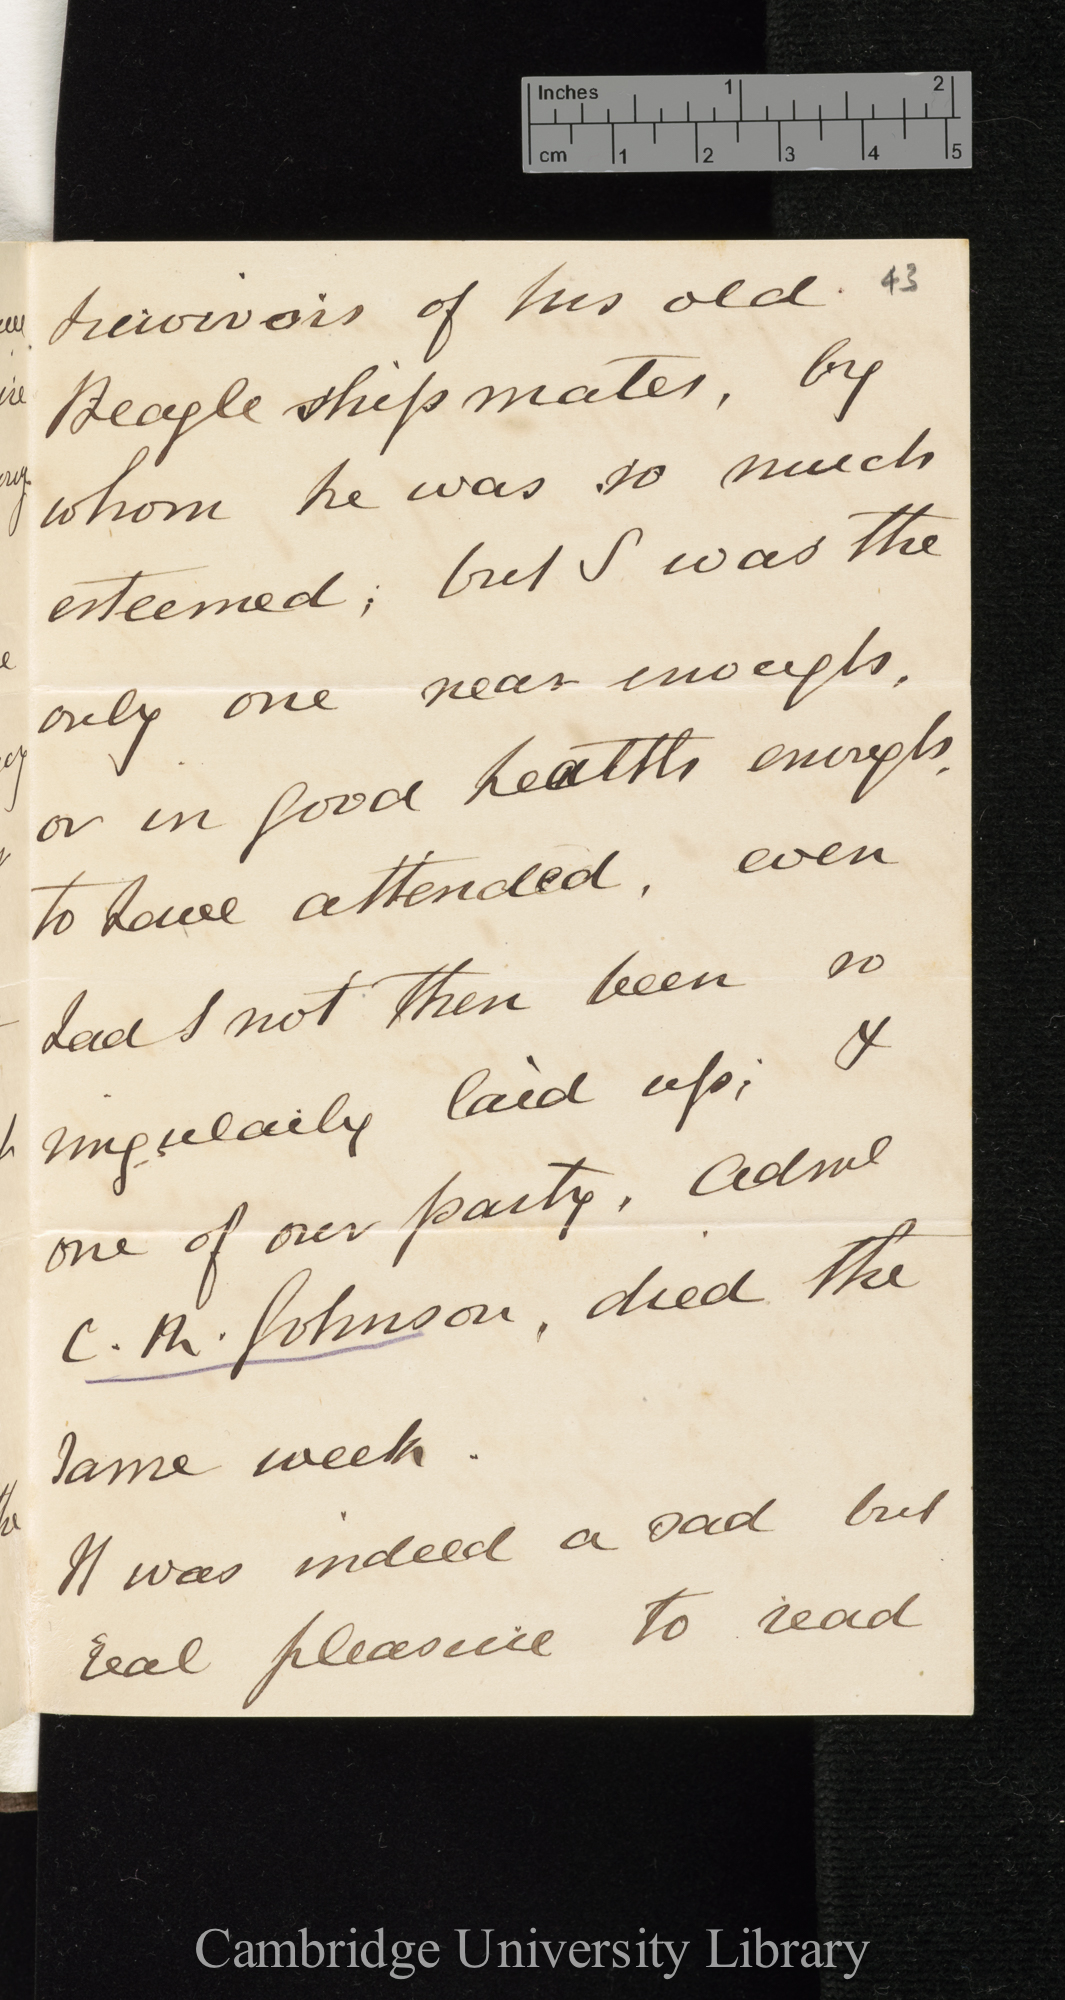 Inches 1 2
cm 1 2 3 4 5
43
survivors of his old
Beagle shipmates, by
whom he was so much
esteemed; but I was the
only one near enough,
or in good health enough,
to have attended, even
had I not then been so
singularly laid up; &
one of our party, Adml
C. R. Johnson, died the
same week.
It was indeed a sad but
real pleasure to read
Cambridge University Library